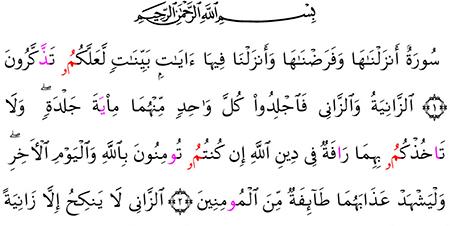 بِسْمِ ٱللَّهِ ٱلرَّحْمَٰنِ ٱلرَّحِيمِ
سُورَةٌ أَنزَلْنَٰهَا وَفَرَضْنَٰهَا وَأَنزَلْنَا فِيهَا ءَايَٰتِۭ بَيِّنَٰتٖ لَّعَلَّكُمُۥ تَذَّكَّرُونَ
﴿١﴾ ٱلزَّانِيَةُ وَٱلزَّانِى فَٱجْلِدُوا۟ كُلَّ وَٰحِدٖ مِّنْهُمَا مِا۟يَةَ جَلْدَةٖۖ وَلَا
تَاخُذْكُمُۥ بِهِمَا رَافَةٌ فِى دِينِ ٱللَّهِ إِن كُنتُمُۥ تُومِنُونَ بِٱللَّهِ وَٱلْيَوْمِ ٱلْأَخِرِۖ
وَلْيَشْهَدْ عَذَابَهُمَا طَآئِفَةٌ مِّنَ ٱلْمُومِنِينَ ﴿٢﴾ ٱلزَّانِى لَا يَنكِحُ إِلَّا زَانِيَةً